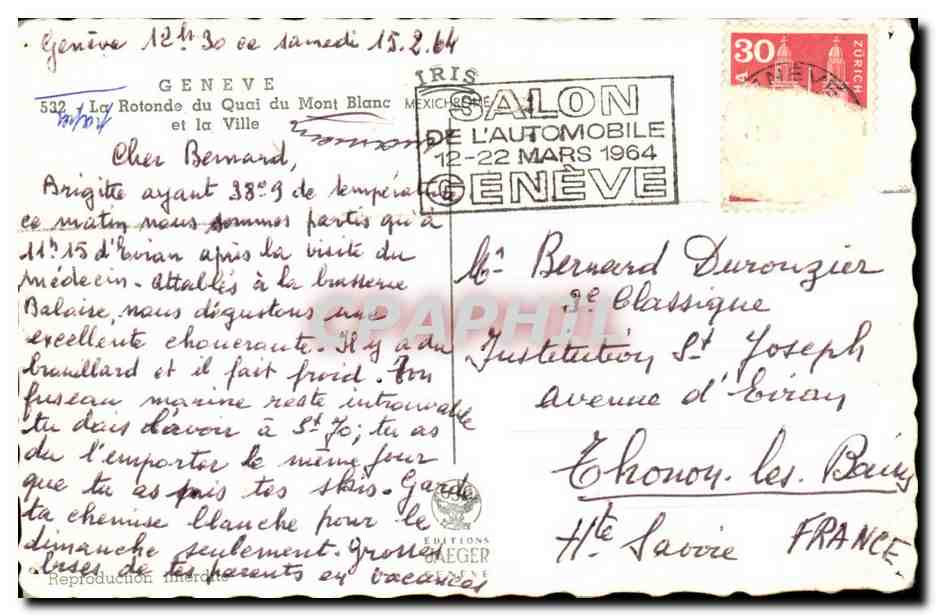 Genève 12h30 ce samedi 15.2.64
GENEVE
532 - La Rotonde du Quai du Mont Blanc
et la Ville
IRIS
MEXICHROME
SALON
DE L'AUTOMOBILE
12-22 MARS 1964
GENÈVE
30
ZÜRICH
GENÈVE
Cher Bernard,
Brigitte ayant 38°9 de température
ce matin nous sommes partis qu'à
11h15 d'Evian après la visite du
médecin. Attablés à la brasserie
Baloise, nous dégustons une
excellente choucroute. Il y a du
brouillard et il fait froid. Ton
fuseau marine reste introuvable
tu dois l'avoir à St Jo; tu as
du l'emporter le même jour
que tu as pris tes skis. Garde
ta chemise blanche pour le
dimanche seulement. Grosses
bises de tes parents en vacances
Mr Bernard Durouzier
3e Classique
Institution St Joseph
avenue d'Evian
Thonon les Bains
Hte Savoie FRANCE
CPAPHIL
EDITIONS
JAEGER
GENÈVE
Reproduction interdite